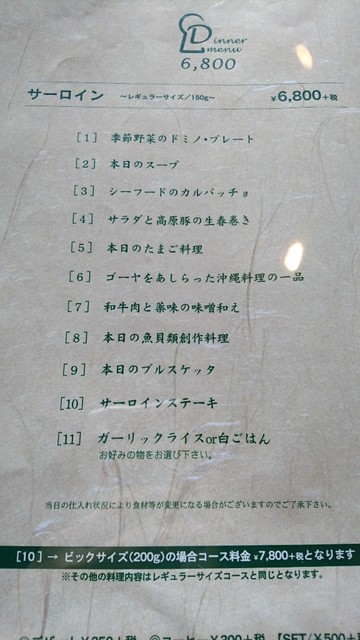 Dinner
menu
6,800
サーロイン ～レギュラーサイズ/150g～ ¥6,800+税
[1] 季節野菜のドミノ・プレート
[2] 本日のスープ
[3] シーフードのカルパッチョ
[4] サラダと高原豚の生春巻き
[5] 本日のたまご料理
[6] ゴーヤをあしらった沖縄料理の一品
[7] 和牛肉と薬味の味噌和え
[8] 本日の魚貝類創作料理
[9] 本日のブルスケッタ
[10] サーロインステーキ
[11] ガーリックライスor白ごはん
お好みの物をお選び下さい。
当日の仕入れ状況により食材等が変更になる場合がございますのでご了承下さい。
[10] → ビックサイズ(200g)の場合コース料金 ¥7,800+税となります
※その他の料理内容はレギュラーサイズコースと同じとなります。
◎デザート¥350+税 ◎コーヒー¥300+税 【SET/¥500+